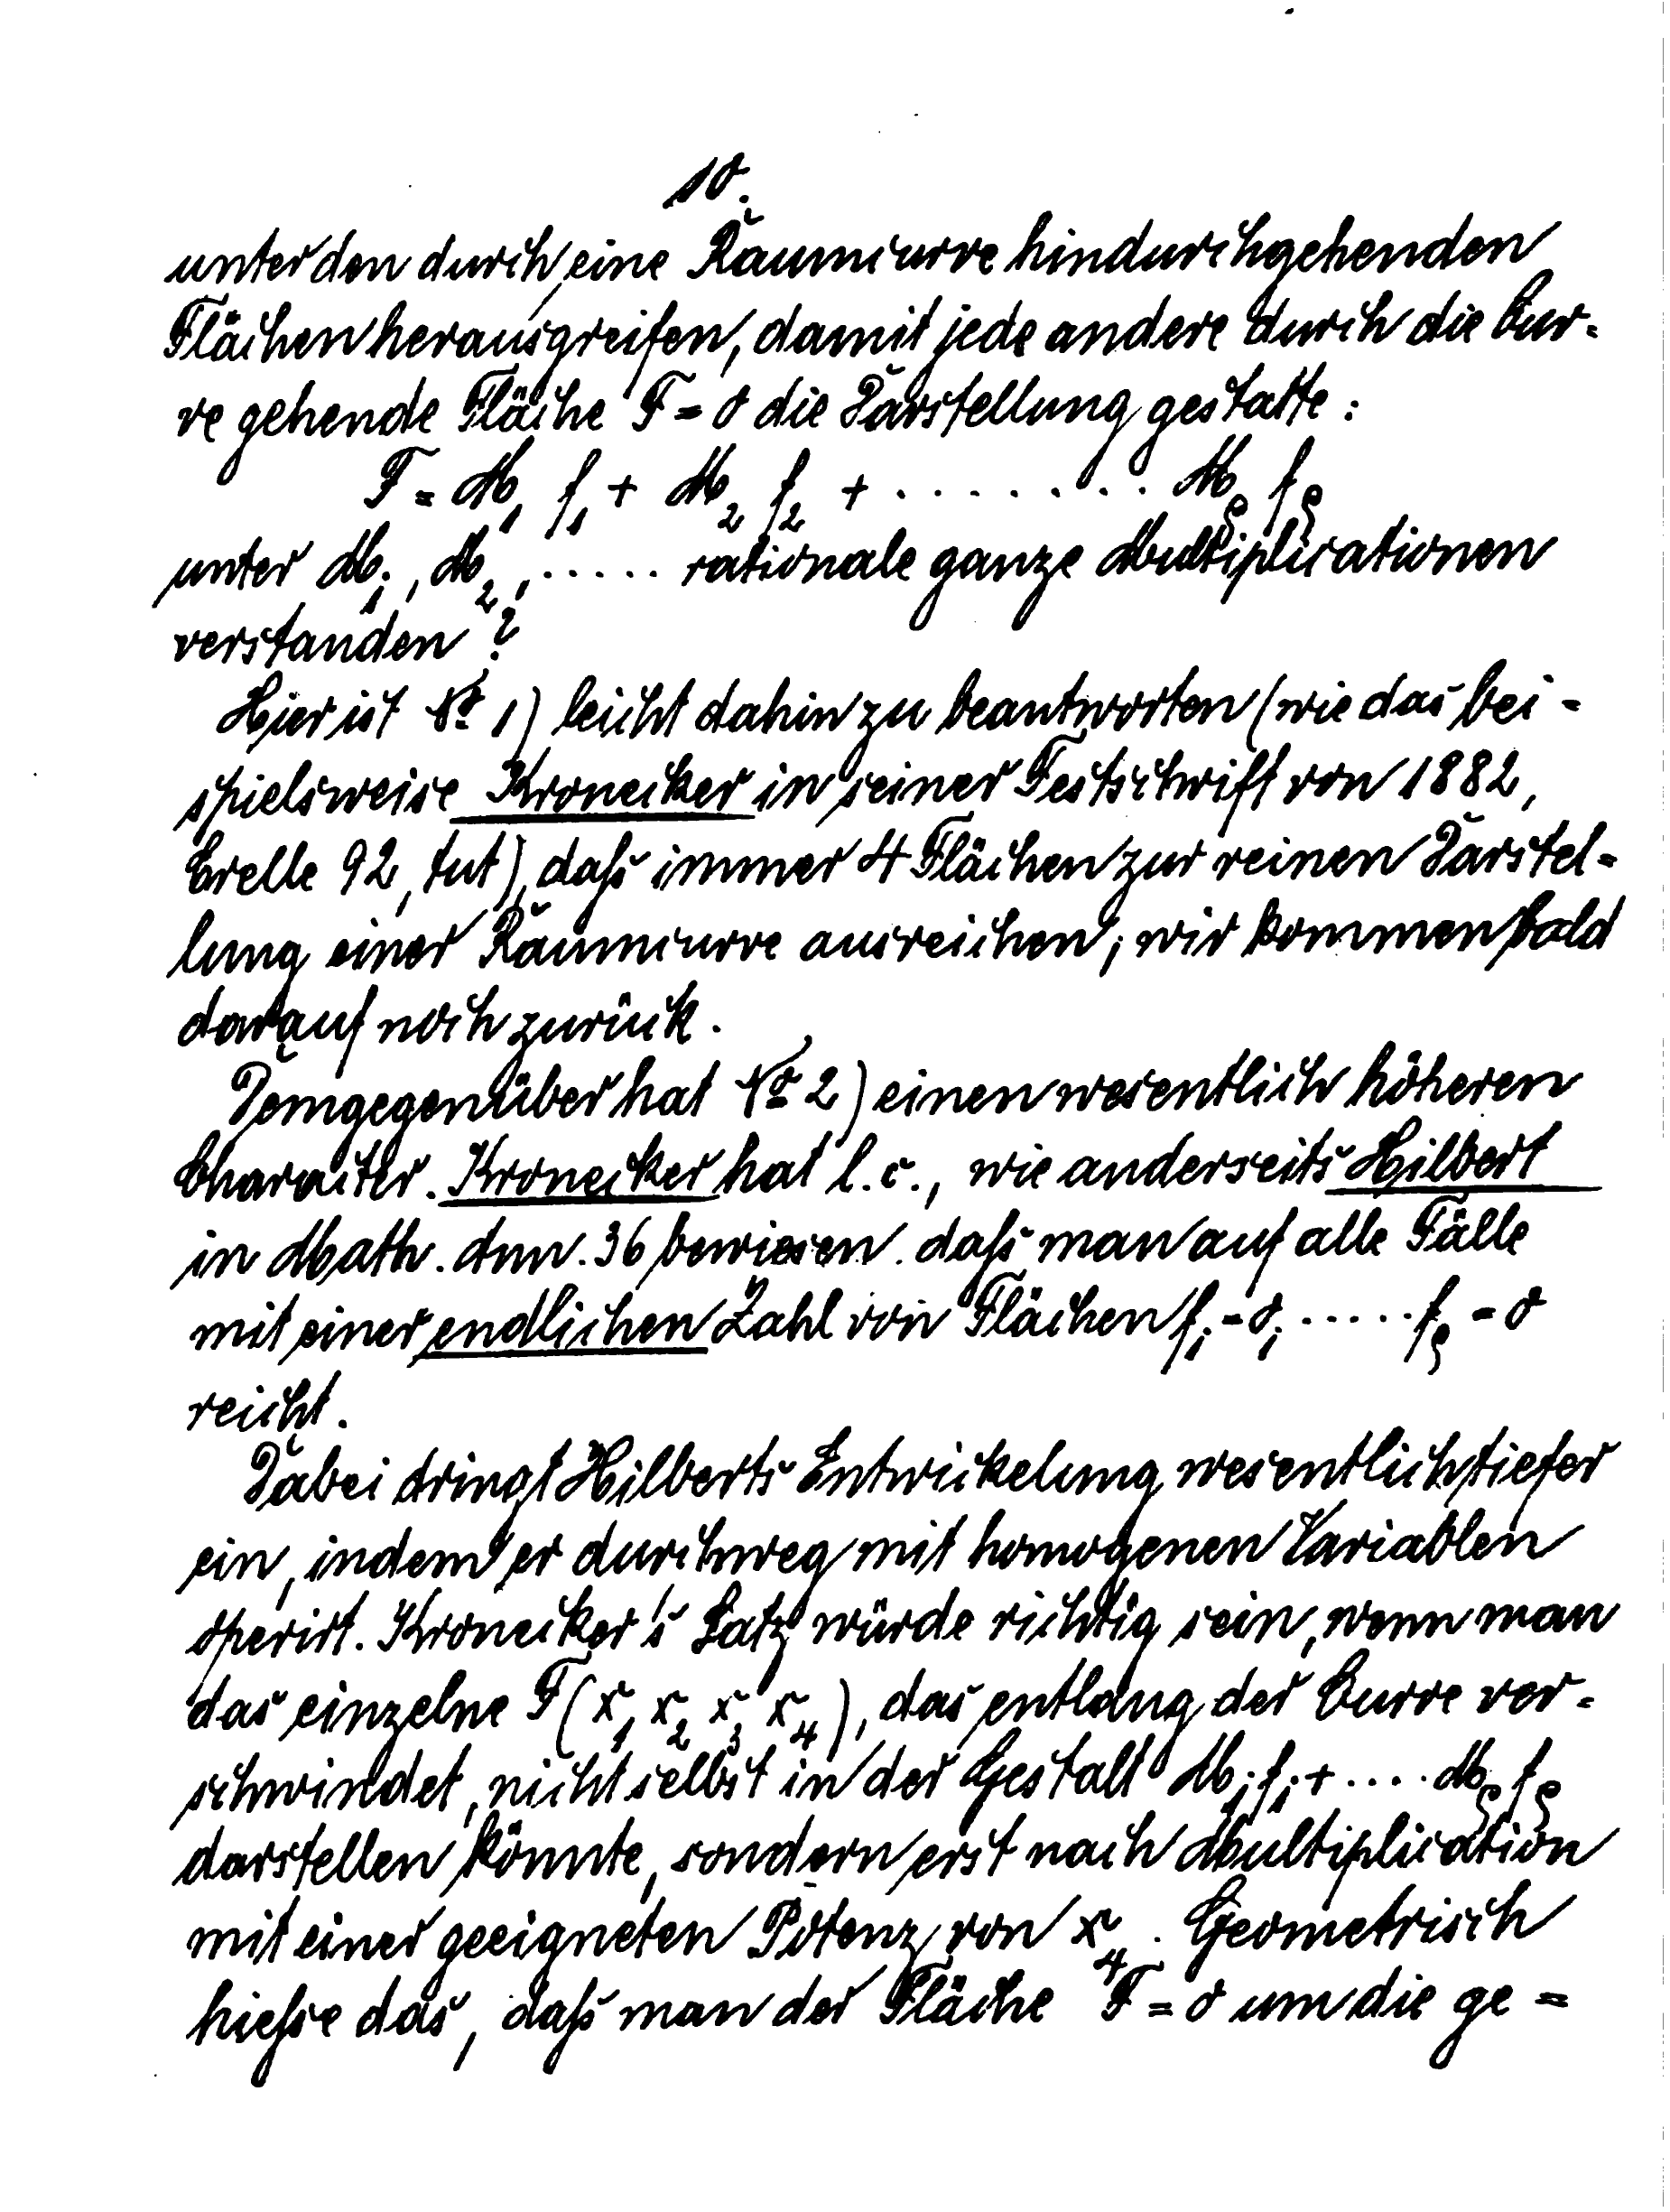 10.
unter den durch eine Raumcurve hindurchgehenden
Flächen herausgreifen, damit jede andere durch die Cur-
ve gehende Fläche F = 0 die Darstellung gestatte:
F = M₁ f₁ + M₂ f₂ + ........ Mᵨ fᵨ
unter M₁, M₂, ..... rationale ganze Multiplicationen
verstanden?
Hier ist № 1) leicht dahin zu beantworten (wie das bei-
spielsweise Kronecker in seiner Festschrift von 1882,
Crelle 92, tut), daß immer 4 Flächen zur reinen Darstel-
lung einer Raumcurve ausreichen; wir kommen bald
darauf noch zurück.
Demgegenüber hat № 2) einen wesentlich höheren
Charakter. Kronecker hat l.c., wie anderseits Hilbert
in Math. Ann. 36 bewiesen. daß man auf alle Fälle
mit einer endlichen Zahl von Flächen f₁ = 0, ..... fᵨ = 0
reicht.
Dabei dringt Hilberts Entwickelung wesentlich tiefer
ein, indem er durchweg mit homogenen Variablen
operirt. Kronecker's Satz würde richtig sein, wenn man
das einzelne F(x₁ x₂ x₃ x₄), das entlang der Curve ver-
schwindet, nicht selbst in der Gestalt M₁f₁ + .... Mᵨfᵨ
darstellen könnte, sondern erst nach Multiplication
mit einer geeigneten Potenz von x₄. Geometrisch
hieße das, daß man der Fläche F = 0 um die ge-